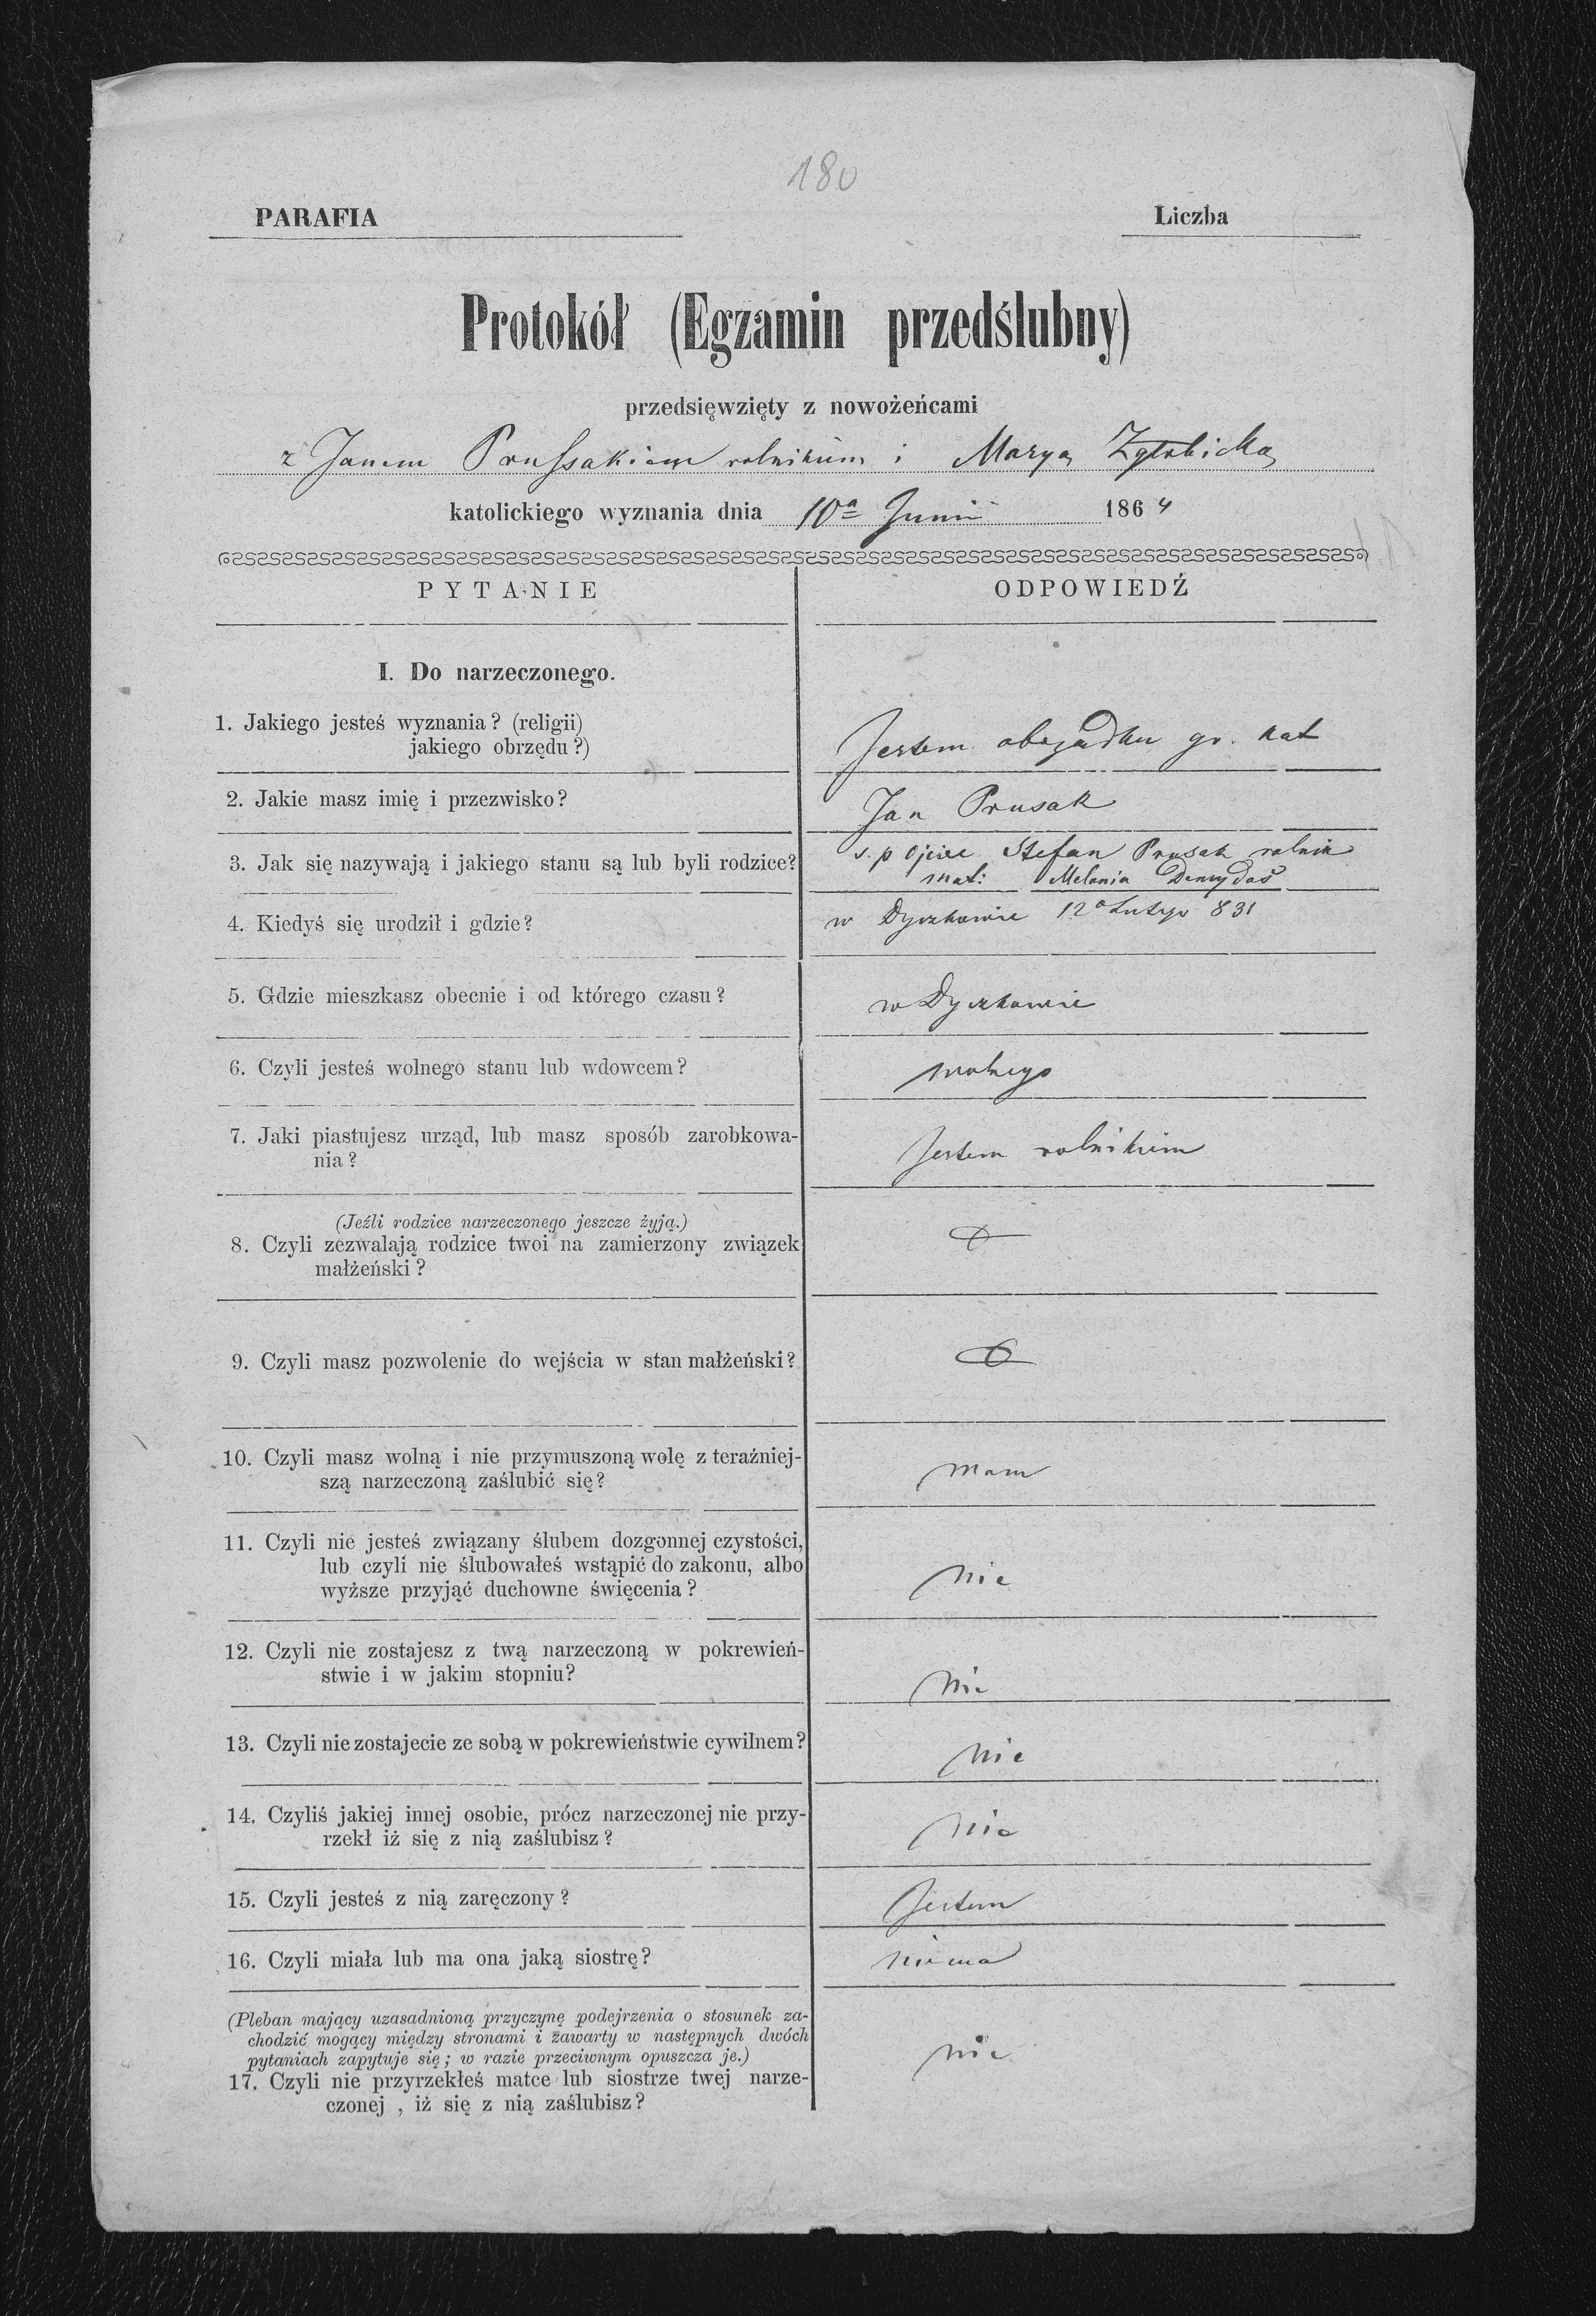 180
PARAFIA
Liczba
Protokół (Egzamin przedślubny)
przedsięwzięty z nowożeńcami
z Janem Prussakiem rolnikiem i Maryą Zgłobicką
katolickiego wyznania dnia 10a Junii 1864
PYTANIE
ODPOWIEDŹ
I. Do narzeczonego.
1. Jakiego jesteś wyznania? (religii)
jakiego obrzędu?)
Jestem obrządku gr. kat
2. Jakie masz imię i przezwisko?
Jan Prusak
3. Jak się nazywają i jakiego stanu są lub byli rodzice?
s. p ojciec Stefan Prusak rolnik
mat: Melania
4. Kiedyś się urodził i gdzie?
w Dyczkowie 12o Lutego 831
5. Gdzie mieszkasz obecnie i od którego czasu?
w Dyczkowie
6. Czyli jesteś wolnego stanu lub wdowcem?
wolnego
7. Jaki piastujesz urząd, lub masz sposób zarobkowa-
nia?
Jestem rolnikiem
(Jeźli rodzice narzeczonego jeszcze żyją.)
8. Czyli zezwalają rodzice twoi na zamierzony związek
małżeński?
9. Czyli masz pozwolenie do wejścia w stan małżeński?
10. Czyli masz wolną i nie przymuszoną wolę z teraźniej-
szą narzeczoną zaślubić się?
mam
11. Czyli nie jesteś związany ślubem dozgonnej czystości,
lub czyli nie ślubowałeś wstąpić do zakonu, albo
wyższe przyjąć duchowne święcenia?
nie
12. Czyli nie zostajesz z twą narzeczoną w pokrewień-
stwie i w jakim stopniu?
nie
13. Czyli nie zostajecie ze sobą w pokrewieństwie cywilnem?
nie
14. Czyliś jakiej innej osobie, prócz narzeczonej nie przy-
rzekł iż się z nią zaślubisz?
nie
15. Czyli jesteś z nią zaręczony?
Jestem
16. Czyli miała lub ma ona jaką siostrę?
niema
(Pleban mający uzasadnioną przyczynę podejrzenia o stosunek za-
chodzić mogący między stronami i zawarty w następnych dwóch
pytaniach zapytuje się; w razie przeciwnym opuszcza je.)
17. Czyli nie przyrzekłeś matce lub siostrze twej narze-
czonej , iż się z nią zaślubisz?
nie